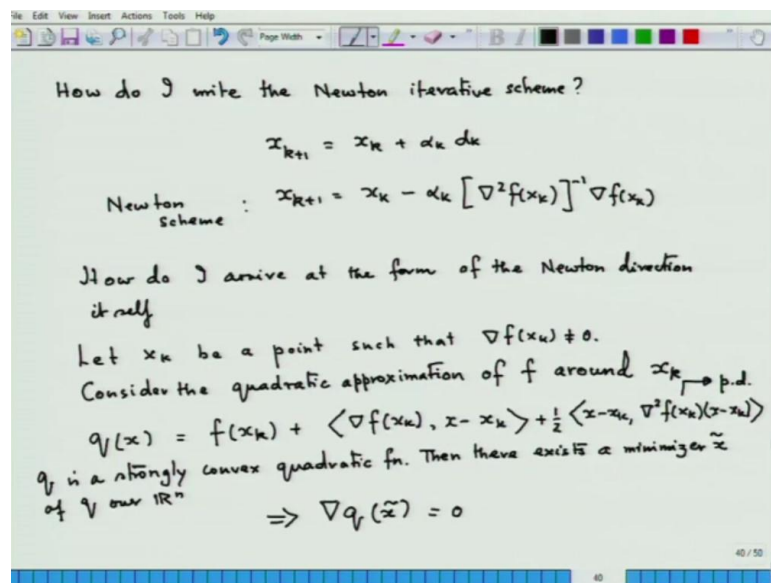 File Edit View Insert Actions Tools Help
Page Width
B I
How do I write the Newton iterative scheme?
x_{k+1} = x_k + α_k d_k
Newton scheme : x_{k+1} = x_k - α_k [∇²f(x_k)]^{-1} ∇f(x_k)
How do I arrive at the form of the Newton direction
itself
Let x_k be a point such that ∇f(x_k) ≠ 0.
Consider the quadratic approximation of f around x_k
→ p.d.
q(x) = f(x_k) + <∇f(x_k), x - x_k> + 1/2 <x - x_k, ∇²f(x_k)(x - x_k)>
q is a strongly convex quadratic fn. Then there exists a minimizer x̃
of q over ℝⁿ
⇒ ∇q(x̃) = 0
40/50
40